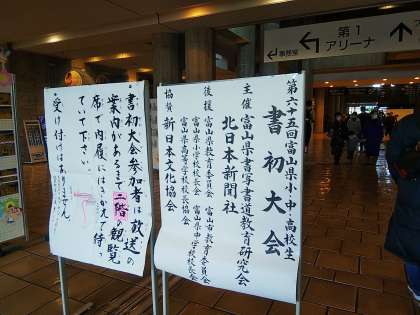 第1
アリーナ
事務室
第六十五回富山県小中高校生
書初大会
主催 富山県書写書道教育研究会
北日本新聞社
後援 富山県教育委員会 富山市教育委員会
富山県小学校長会 富山県中学校校長会
富山県高等学校長協会
協賛 新日本文化協会
・書初大会参加者は放送の
案内があるまで二階の観覧
席で内履にはきかえて待っ
ていて下さい。
・受け付けはありません。